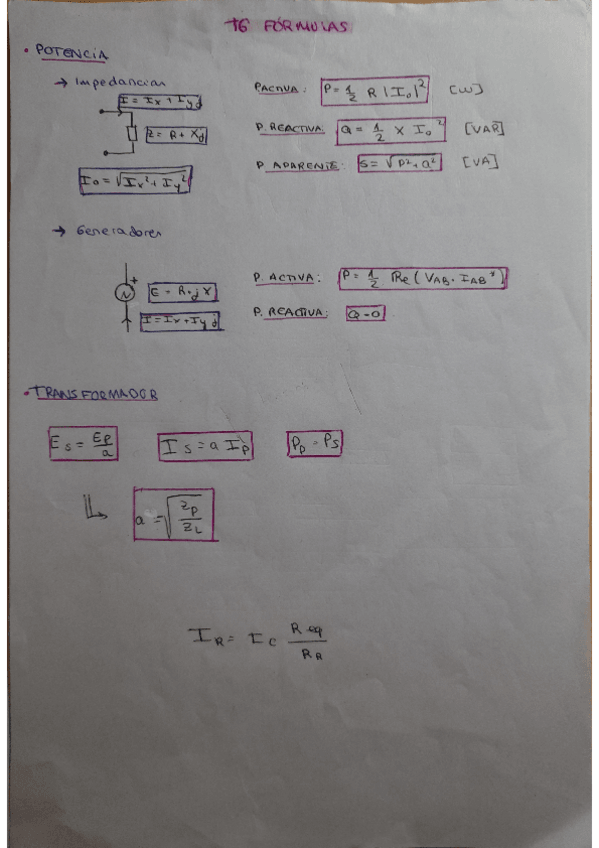 T6 FÓRMULAS
• POTENCIA
→ Impedancias
I = Ix + Iy j
Z = R + Xj
Io = √(Ix² + Iy²)
P ACTIVA: P = 1/2 R |Io|² [W]
P. REACTIVA: Q = 1/2 X Io² [VAR]
P APARENTE: S = √(P² + Q²) [VA]
→ Generadores
E = R + j X
I = Ix + Iy j
P. ACTIVA: P = 1/2 Re (VAB · IAB*)
P. REACTIVA: Q = 0
• TRANSFORMADOR
Es = Ep/a
Is = a Ip
Pp = Ps
a = √(Zp/ZL)
IR = Ic Req/RR